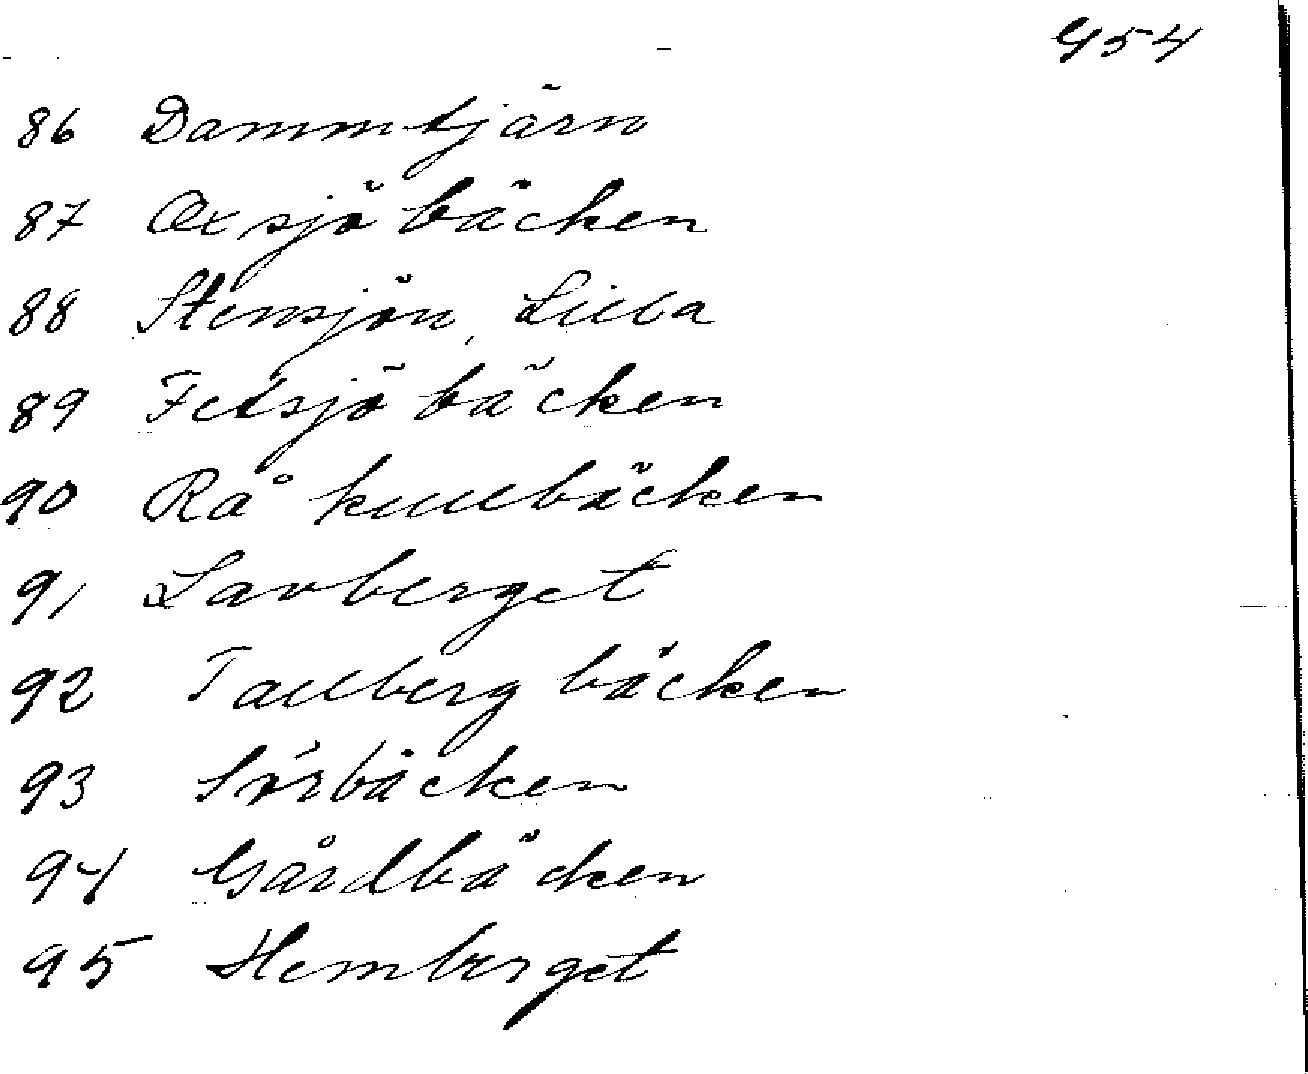 954
86 Dammtjärn
87 Oxsjöbäcken
88 Stensjön, Lilla
89 Fetsjöbäcken
90 Råkullbäcken
91 Lavberget
92 Tallbergbäcken
93 Sörbäcken
94 Gårdbäcken
95 Hemberget